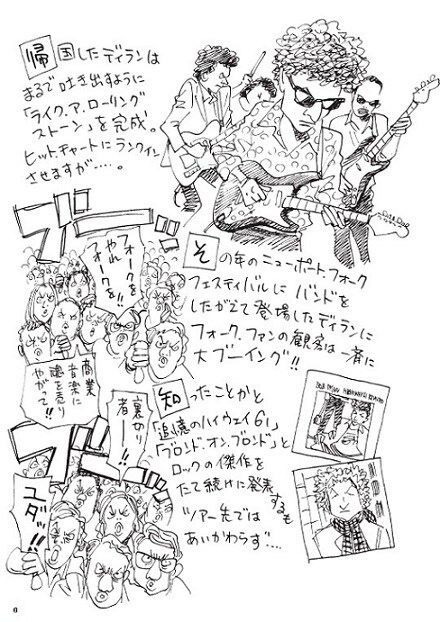 帰国したディランは
まるで吐き出すように
「ライク.ア.ローリング
ストーン」を完成。
ヒットチャートにランクイン
させますが……。
ブー
フォークを
やれ
フォークを!!
その年のニューポートフォーク
フェスティバルに バンドを
したがえて登場したディランに
フォーク.ファンの観客は一斉に
大ブーイング!!
商業
音楽に
魂を売り
やがって!!
裏切り
者ーー!!
ブー
ユダッ!!
知ったことかと
「追憶のハイウェイ61」
「ブロンド.オン.ブロンド」と
ロックの傑作を
たて続けに発表
するも
ツアー先では
あいかわらず……
6